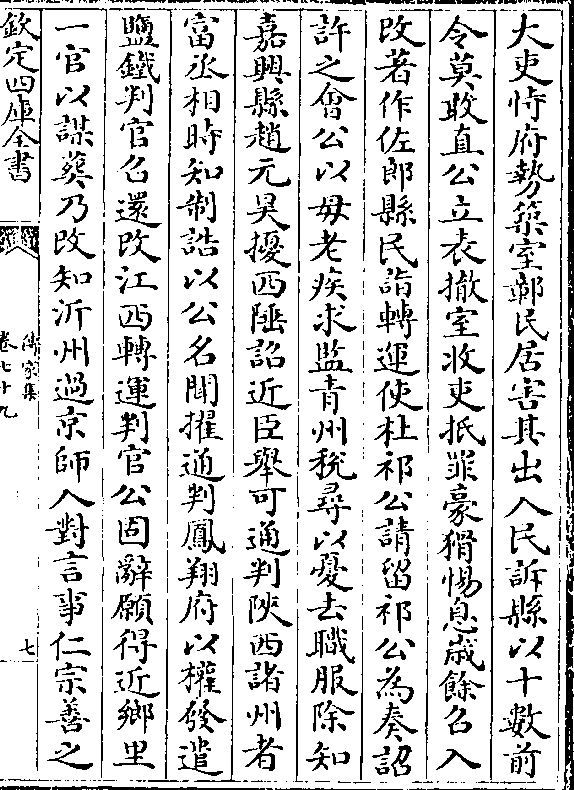 大吏恃府勢築室鄰民居害其出入民訴縣以十數前
令莫敢直公立表撤室收吏抵罪豪猾惕息歳餘召入
改著作佐郎縣民詣轉運使杜祁公請留祁公為奏詔
許之會公以母老疾求監青州稅尋以憂去職服除知
嘉興縣趙元昊擾西陲詔近臣舉可通判陜西諸州者
富丞相時知制誥以公名聞擢通判鳳翔府以權發遣
鹽鐵判官召還改江西轉運判官公固辭願得近鄉里
一官以謀葬乃改知沂州過京師入對言事仁宗善之
欽定四庫全書
傳家集
卷七十九
七